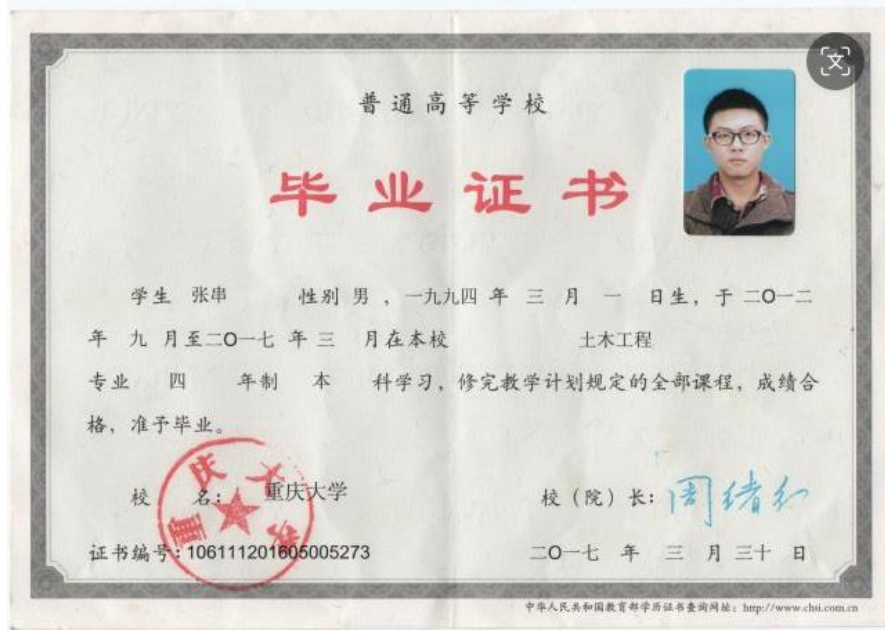 普通高等学校
毕业证书
学生 张串 性别 男 ，一九九四 年 三 月 一 日生，于 二O一二
年 九 月至二O一七 年 三 月在本校 土木工程
专业 四 年制 本 科学习，修完教学计划规定的全部课程，成绩合
格，准予毕业。
校 名： 重庆大学
重庆大学
校（院）长：周绪红
证书编号：106111201605005273
二O一七 年 三 月 三十 日
中华人民共和国教育部学历证书查询网址：http://www.chsi.com.cn
文